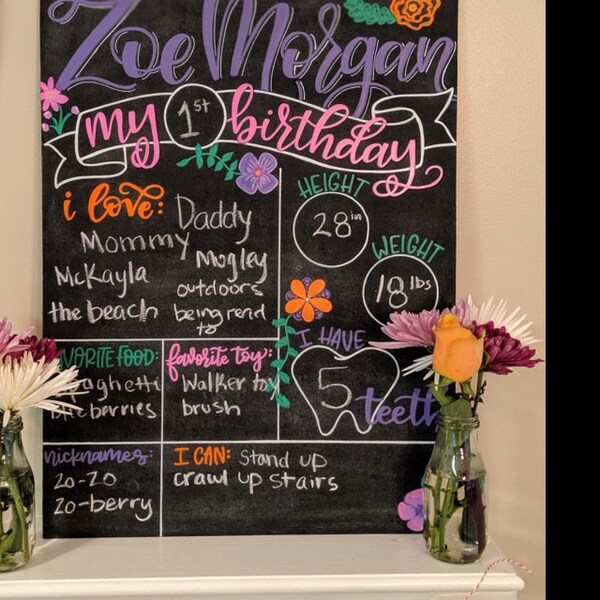 Zoe Morgan
my 1st birthday
i love:
Daddy
Mommy
Mogley
McKayla
outdoors
the beach
being rend
to
HEIGHT
28 in
WEIGHT
18 lbs
I HAVE
5
teeth
AVORITE FOOD:
spaghetti
blueberries
favorite toy:
Walker toy
brush
nicknames:
Zo-Zo
Zo-berry
I CAN: Stand up
crawl up stairs